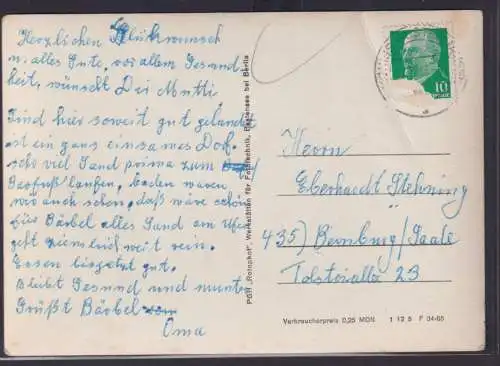 Herzlichen Glückwunsch
u. alles Gute, vor allem Gesund-
heit, wünscht Dir Mutti
Sind hier soweit gut gelandet
ist ein ganz einsames Dorf
sehr viel Sand prima zum
Barfuß laufen, baden waren
wir auch schon, daß wäre schön
für Bärbel alles Sand am Ufer
geht ziemlich weit rein.
Essen bis jetzt gut.
Bleibt Gesund und munter
Grüßt Bärbel von
Oma
PGH „Rotophot", Werkstätten für Fototechnik, Bestensee bei Berlin
10
Herrn
Eberhardt Stehning
435) Bernburg/Saale
Tolstoiallee 23
Verbraucherpreis 0,25 MDN 1 12 5 F 04-65